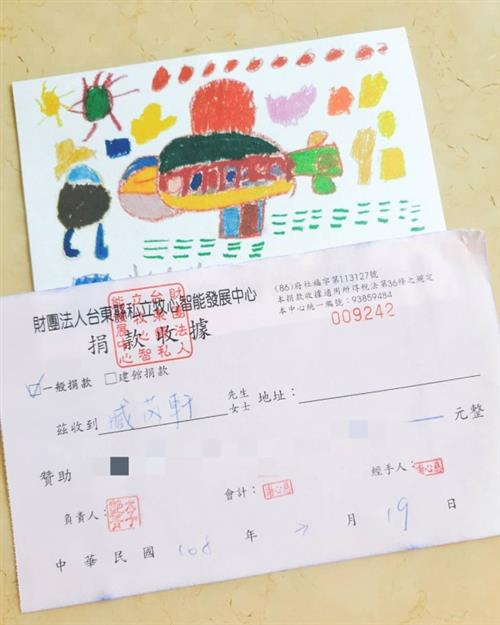 財團法人台東縣私立牧心智能發展中心
捐款收據
(86)府社福字第113127號
本捐款收據適用所得稅法第36條之規定
本中心統一編號：93859484
009242
財團法人台東縣私立牧心智能發展中心
☑一般捐款 □建館捐款
茲收到 臧芮軒 先生 女士 地址：
贊助 元整
負責人： 會計： 經手人：
中華民國 108 年 7 月 19 日